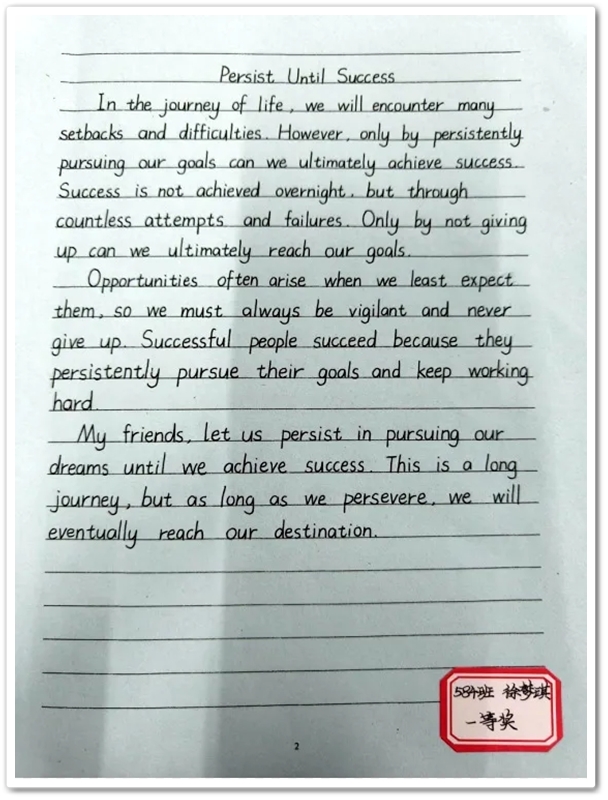 Persist Until Success
In the journey of life, we will encounter many
setbacks and difficulties. However, only by persistently
pursuing our goals can we ultimately achieve success.
Success is not achieved overnight, but through
countless attempts and failures. Only by not giving
up can we ultimately reach our goals.
Opportunities often arise when we least expect
them, so we must always be vigilant and never
give up. Successful people succeed because they
persistently pursue their goals and keep working
hard.
My friends, let us persist in pursuing our
dreams until we achieve success. This is a long
journey, but as long as we persevere, we will
eventually reach our destination.
584班 徐梦琪
一等奖
2